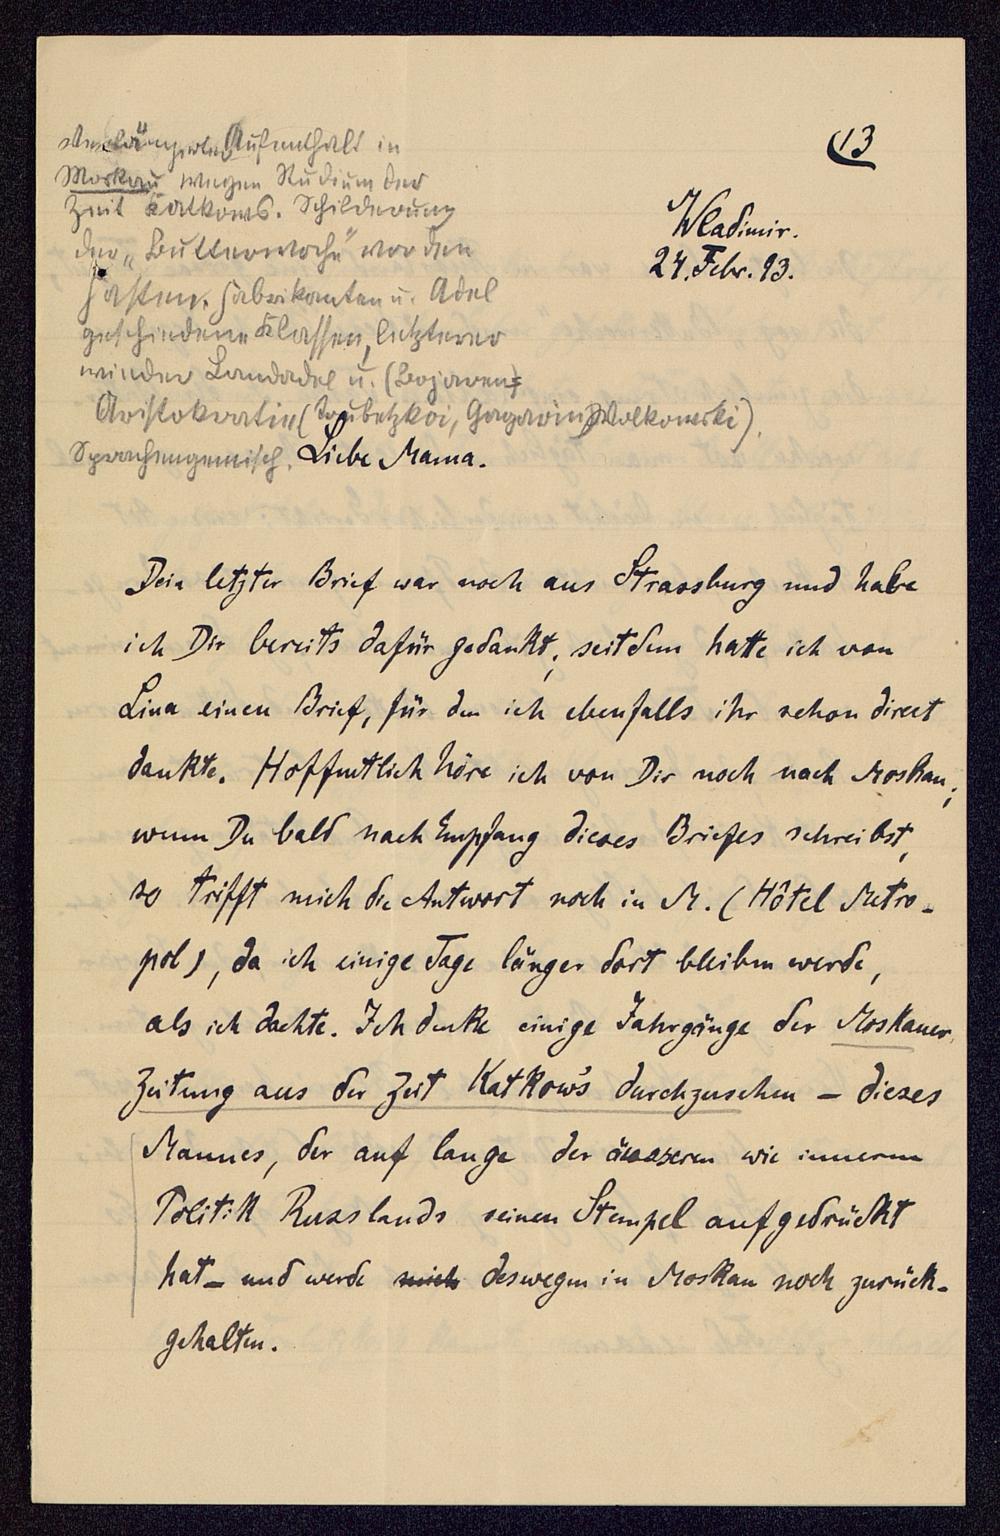 13
Verlängerter Aufenthalt in
Moskau wegen Studium der
Zeit Katkows. Schilderung
der „Butterwoche" vor den
Fasten. Fabrikanten u. Adel
geschiedene Klassen, letzterer
wieder Landadel u. (Bojaren=
Aristokratie (Trubetzkoi, Gagarin, Wolkonski).
Sprachengemisch.
Wladimir.
24. Febr. 93.
Liebe Mama.
Dein letzter Brief war noch aus Strassburg und habe
ich Dir bereits dafür gedankt; seitdem hatte ich von
Lina einen Brief, für den ich ebenfalls ihr schon direct
dankte. Hoffentlich höre ich von Dir noch nach Moskau;
wenn Du bald nach Empfang dieses Briefes schreibst,
so trifft mich die Antwort noch in M. (Hôtel Metro-
pol), da ich einige Tage länger dort bleiben werde,
als ich dachte. Ich denke einige Jahrgänge der Moskauer
Zeitung aus der Zeit Katkow's durchzusehen – dieses
Mannes, der auf lange der äusseren wie inneren
Politik Russlands seinen Stempel aufgedrückt
hat – und werde mich deswegen in Moskau noch zurück-
gehalten.